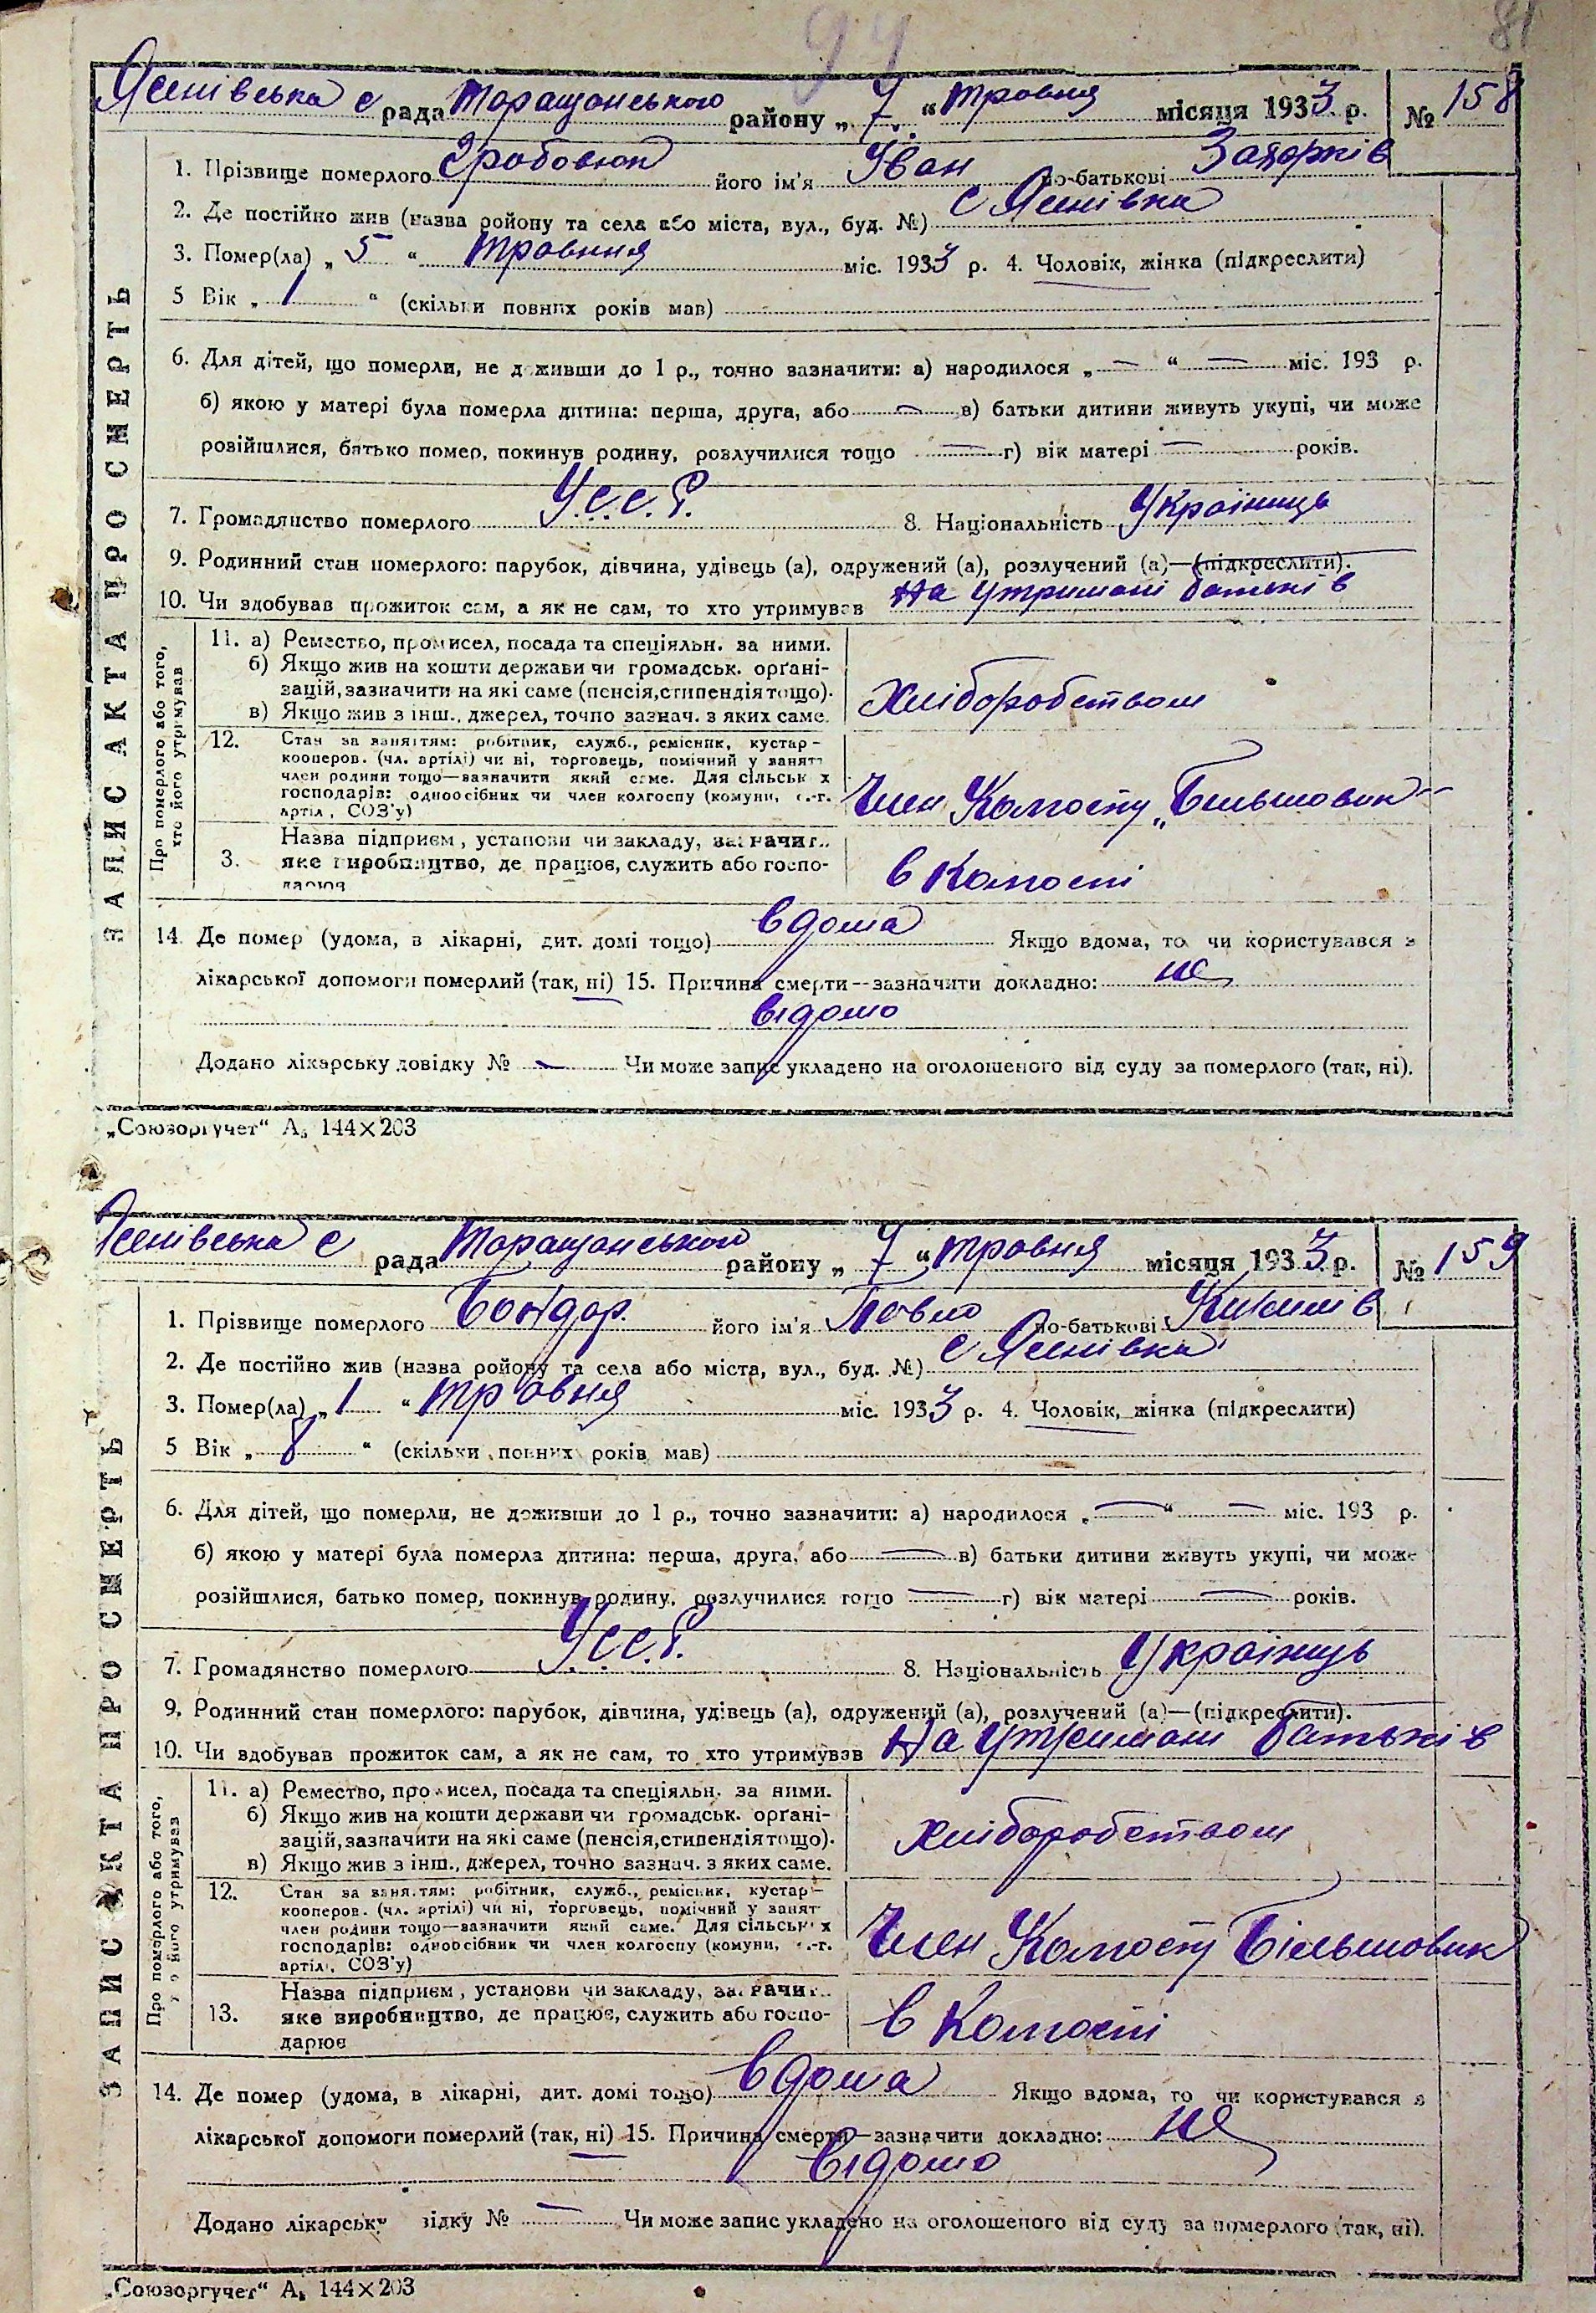 94
81
Ясенівська с рада Таращанського району „ 7 “ травня місяця 1933 р. № 158
1. Прізвище померлого Грабовюк його ім'я Іван по-батькові Захарків
2. Де постійно жив (назва ройону та села або міста, вул., буд. №) с Ясенівка
3. Помер(ла) „ 5 “ травння міс. 1933 р. 4. Чоловік, жінка (підкреслити)
5 Вік „ 1 “ (скільки повних років мав)
6. Для дітей, що померли, не доживши до 1 р., точно зазначити: а) народилося „ — “ — міс. 193 р.
б) якою у матері була померла дитина: перша, друга, або — в) батьки дитини живуть укупі, чи може
розійшлися, батько помер, покинув родину, розлучилися тощо — г) вік матері — років.
7. Громадянство померлого У.С.С.Р. 8. Національність Українець
9. Родинний стан померлого: парубок, дівчина, удівець (а), одружений (а), розлучений (а)—(підкреслити).
10. Чи здобував прожиток сам, а як не сам, то хто утримував На утримані батьків
ЗАПИС АКТА ПРО СМЕРТЬ
Про померлого або того, хто його утримував
11. а) Ремество, промисел, посада та спеціяльн. за ними.
б) Якщо жив на кошти держави чи громадськ. орґані-
зацій, зазначити на які саме (пенсія, стипендія тощо).
в) Якщо жив з інш., джерел, точно зазнач. з яких саме.
Хліборобством
12. Стан за заняттям: робітник, служб., ремісник, кустар-
кооперов. (чл. артілі) чи ні, торговець, помічний у занятт
член родини тощо—зазначити який саме. Для сільськ х
господарів: одноосібник чи член колгоспу (комуни, с.-г.
артіл, СОЗ'у)
Член Колгоспу „Більшовик“
3. Назва підприєм, установи чи закладу, зазначит..
яке виробництво, де працює, служить або госпо-
дарює
в Колгоспі
14. Де помер (удома, в лікарні, дит. домі тощо) вдома Якщо вдома, то чи користувався з
лікарської допомоги померлий (так, ні) 15. Причина смерти—зазначити докладно: не
відомо
Додано лікарську довідку № — Чи може запис укладено на оголошеного від суду за померлого (так, ні).
„Союзоргучет“ А₅ 144×203
Ясенівська с рада Таращанського району „ 7 “ травня місяця 1933 р. № 159
1. Прізвище померлого Бондар. його ім'я Павло по-батькові
2. Де постійно жив (назва ройону та села або міста, вул., буд. №) с Ясенівка
3. Помер(ла) „ 1 “ травня міс. 1933 р. 4. Чоловік, жінка (підкреслити)
5 Вік „ 8 “ (скільки повних років мав)
6. Для дітей, що померли, не доживши до 1 р., точно зазначити: а) народилося „ — “ — міс. 193 р.
б) якою у матері була померла дитина: перша, друга, або — в) батьки дитини живуть укупі, чи може
розійшлися, батько помер, покинув родину, розлучилися тощо — г) вік матері — років.
7. Громадянство померлого У.С.С.Р. 8. Національність Українець
9. Родинний стан померлого: парубок, дівчина, удівець (а), одружений (а), розлучений (а)—(підкреслити).
10. Чи здобував прожиток сам, а як не сам, то хто утримував На утримані батьків
ЗАПИС АКТА ПРО СМЕРТЬ
Про померлого або того, хто його утримував
11. а) Ремество, промисел, посада та спеціяльн. за ними.
б) Якщо жив на кошти держави чи громадськ. орґані-
зацій, зазначити на які саме (пенсія, стипендія тощо).
в) Якщо жив з інш., джерел, точно зазнач. з яких саме.
хліборобством
12. Стан за заняттям: робітник, служб., ремісник, кустар-
кооперов. (чл. артілі) чи ні, торговець, помічний у занят
член родини тощо—зазначити який саме. Для сільськ х
господарів: одноосібник чи член колгоспу (комуни, с.-г.
артіл, СОЗ'у)
Член Колгоспу Більшовик
13. Назва підприєм, установи чи закладу, зазначит..
яке виробництво, де працює, служить або госпо-
дарює
в Колгоспі
14. Де помер (удома, в лікарні, дит. домі тощо) вдома Якщо вдома, то чи користувався з
лікарської допомоги померлий (так, ні) 15. Причина смерти—зазначити докладно: не
відомо
Додано лікарську відку № — Чи може запис укладено на оголошеного від суду за померлого (так, ні).
„Союзоргучет“ А₅ 144×203